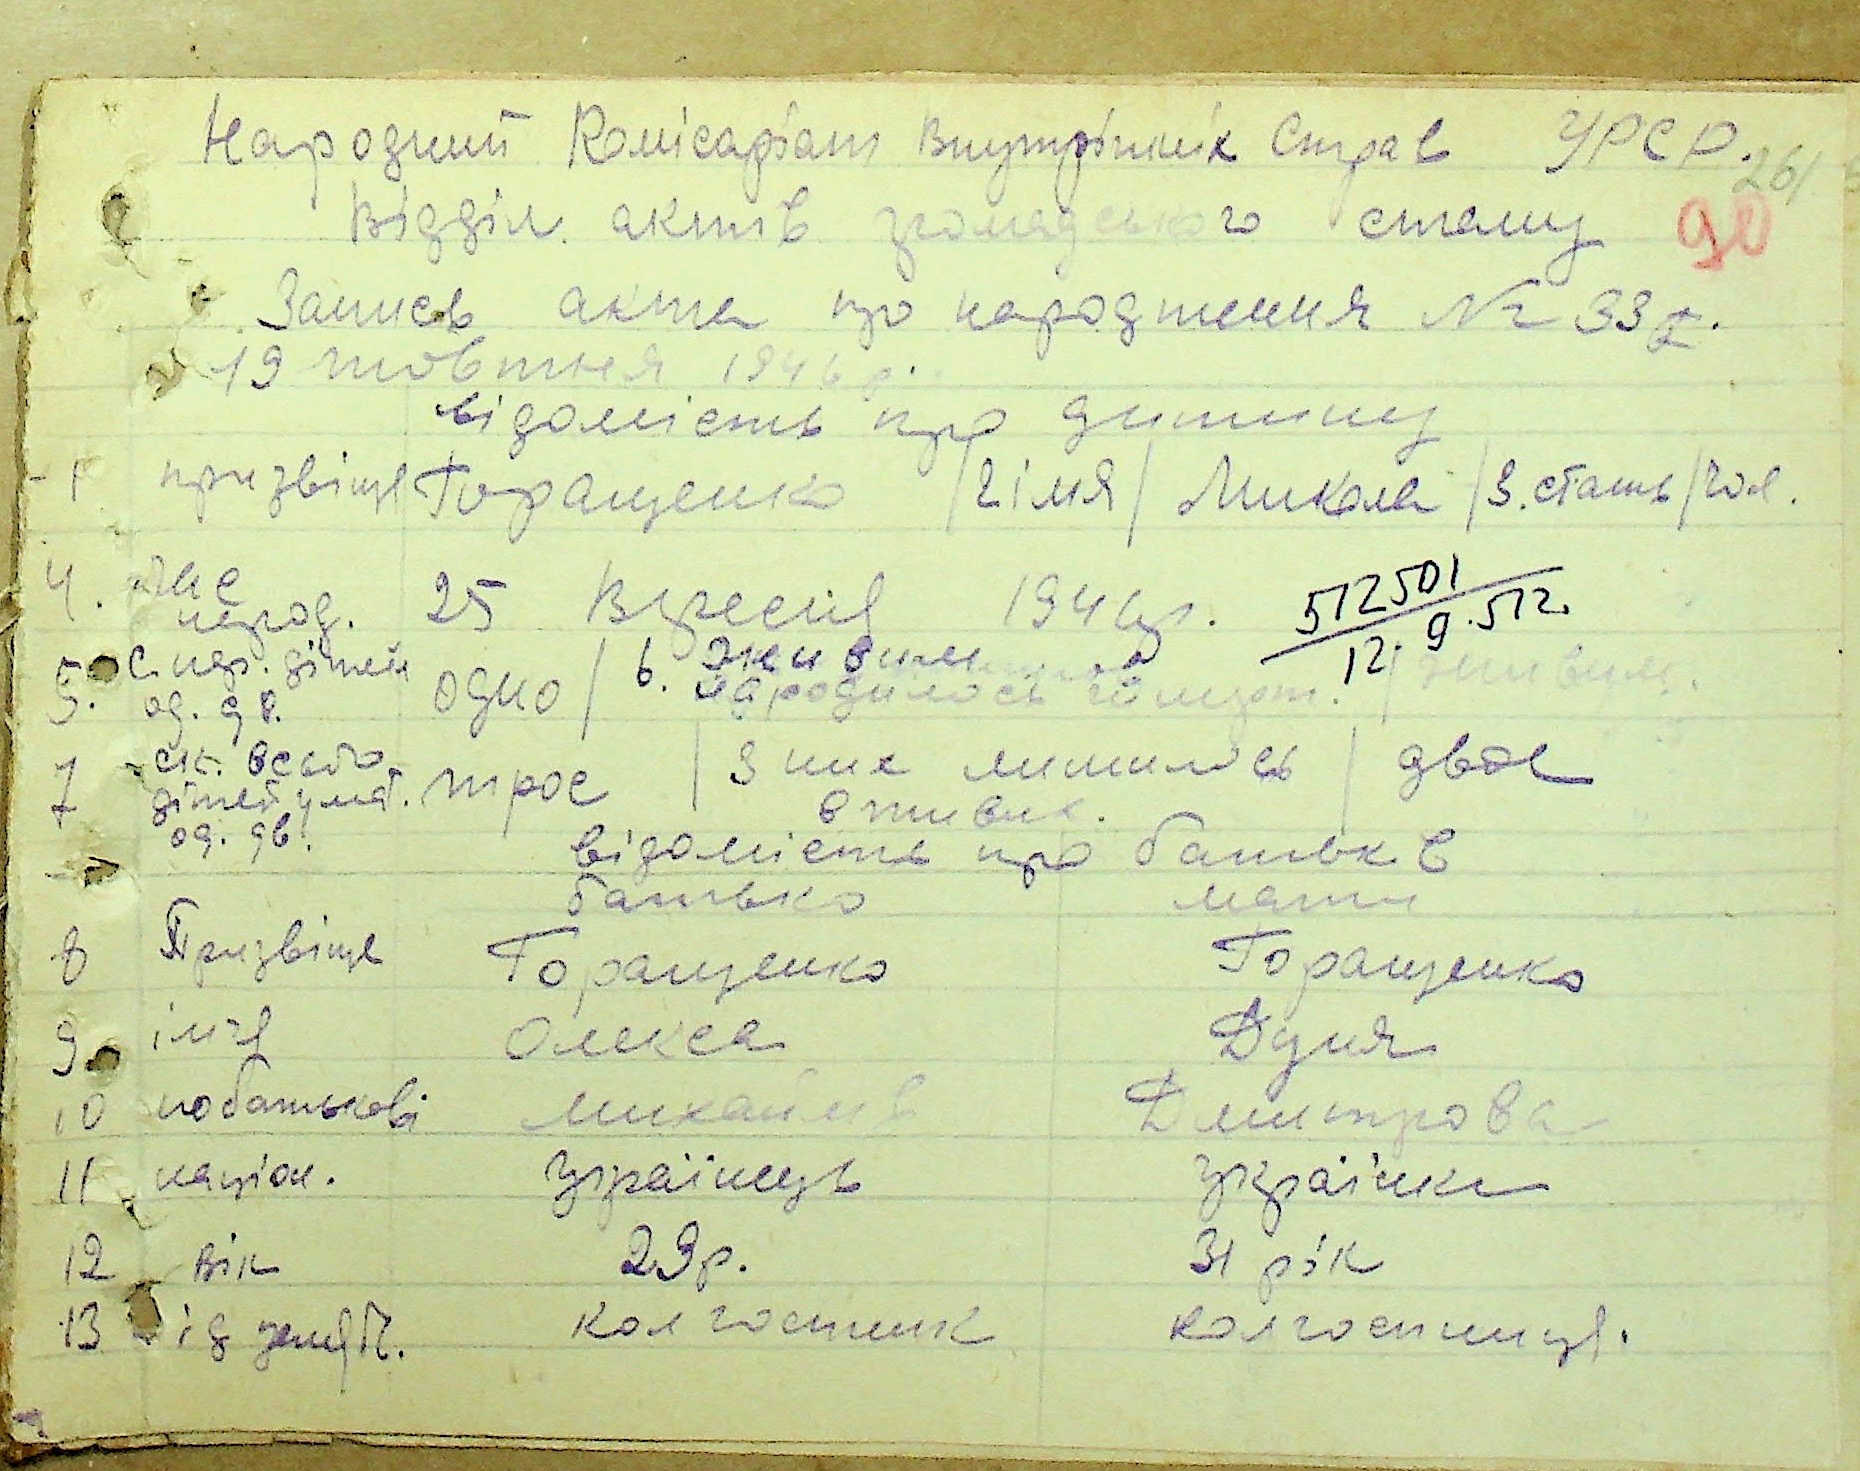 Народний Комісаріат Внутрішніх Справ УРСР.
26/
Відділ актів громадського стану
90
Запись акта про народження № 33
19 жовтня 1946 р.
відомість про дитину
1 призвіще Горащенко / 2 імя / Микола / 3. стать / чол.
4. народ. 25 Вересня 1946 р.
512501
12. 9.512.
5. с. нар. дітей од. дв. одно / 6. живим народилось чи мерт. / живим.
7 ск. всього дітей у мат. од. дв. троє / з них лишилось в живих. / двоє
відомість про батьків
батько мати
8 Призвіще Горащенко Горащенко
9. імя Олекса Дуня
10 побатькові Михайлів Дмитрова
11 націон. українець українка
12 вік 29 р. 31 рік
13 колгоспник колгоспниця.